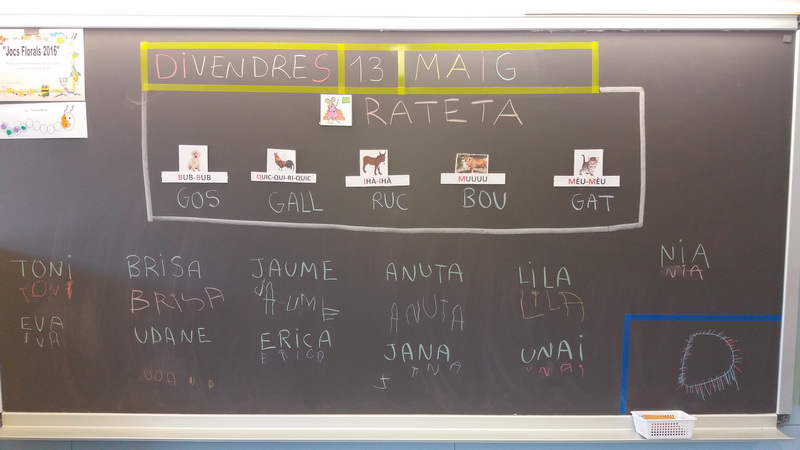 "Jocs Florals 2016"
DiVENDRES 13 MAiG
RATETA
BUB-BUB QUIC-QUI-RI-QUIC IHÀ-IHÀ MUUUU MÈU-MÈU
GOS GALL RUC BOU GAT
TONi BRiSA JAUME ANUTA LiLA NiA
TONI BRISA JAUME ANUTA LILA NIA
EVA UDANE ERiCA JANA UNAi
EVA UDANE ERICA JANA UNAI